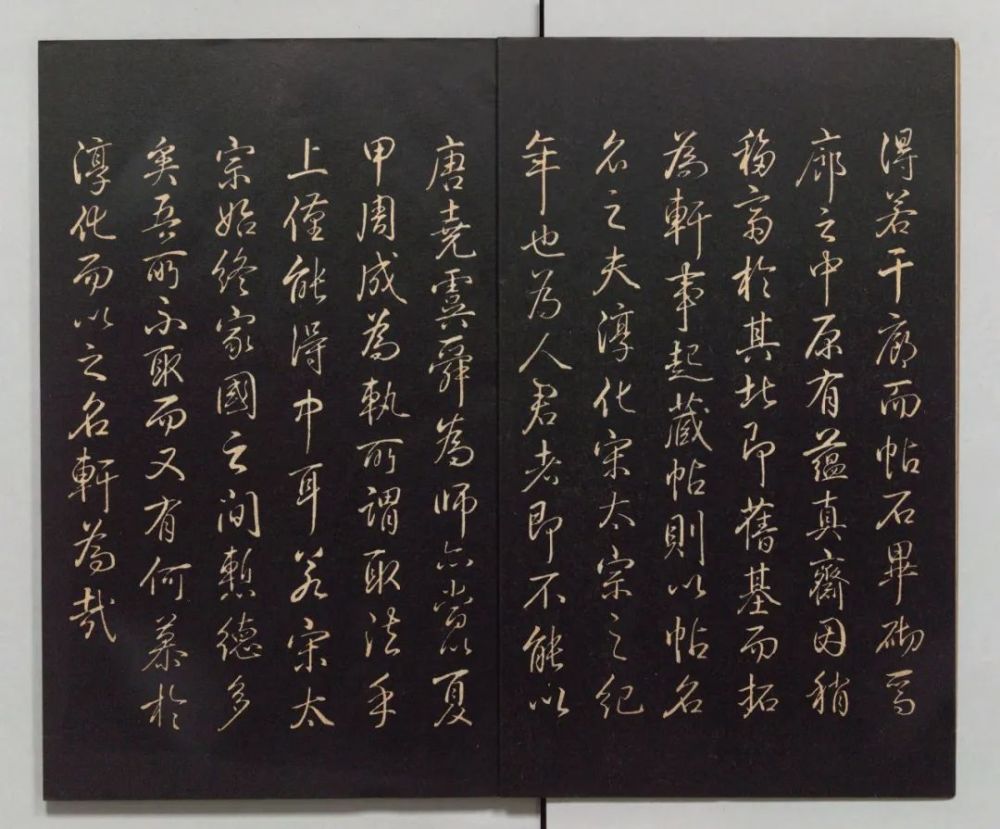 得若干廊而帖石畢砌焉
廊之中原有蘊真齋因稍
移寫於其北即舊基而拓
為軒事起藏帖則以帖名
名之夫淳化宋太宗之紀
年也為人君者即不能以
唐堯虞舜為師亦當以夏
甲周成為執所謂取法乎
上僅能得中耳若宋太
宗始終家國之間慙德多
矣吾所不取而又有何慕於
淳化而以之名軒為哉